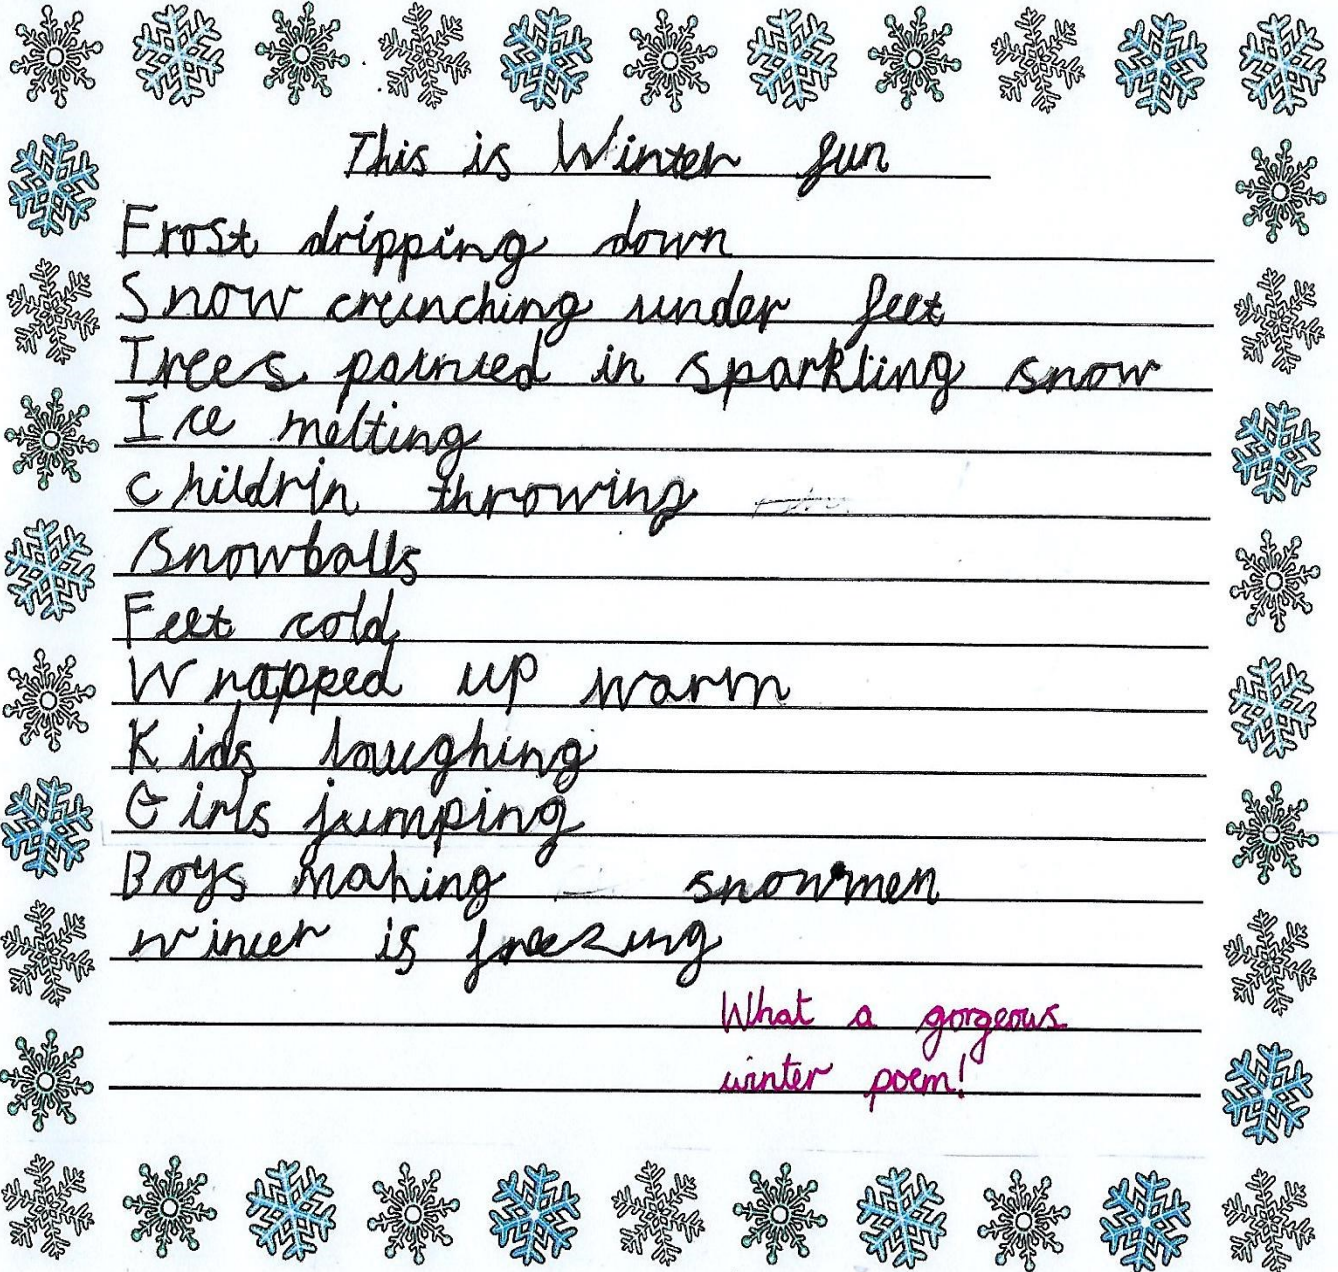 This is Winter fun
Frost dripping down
Snow crunching under feet
Trees painted in sparkling snow
Ice melting
childrin throwing
snowballs
Feet cold
Wrapped up warm
Kids laughing
Girls jumping
Boys making snowmen
winter is freezing
What a gorgeous
winter poem!